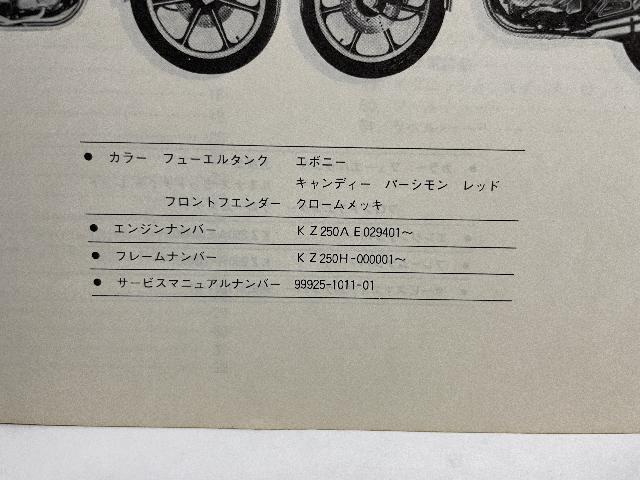 ● カラー フューエルタンク エボニー
キャンディー パーシモン レッド
フロントフエンダー クロームメッキ
● エンジンナンバー KZ250AE029401〜
● フレームナンバー KZ250H-000001〜
● サービスマニュアルナンバー 99925-1011-01